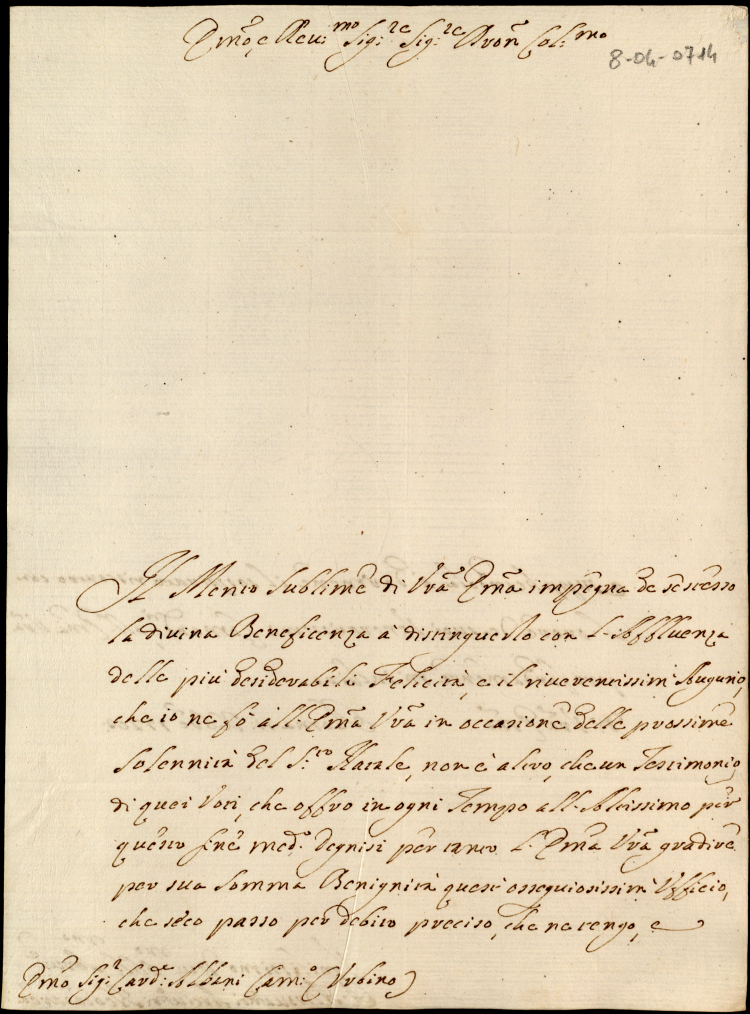 Em̃o, e Rev:mo Sig:re Sig:re Pron Col:mo
8-04-0714
Il Merito sublime di Vr̃a Em̃a impegna da se stesso
la divina Beneficenza à distinguerlo con l'Affluenza
delle più desiderabili Felicità, e il riverentissim' Augurio,
che io ne fò all'Em̃a Vr̃a in occasione delle prossime
Solennità del S:to Natale, non è altro, che un Testimonio
di quei Voti, che offro in ogni Tempo all'Altissimo per
questo fine med:o Degnisi per tanto l'Em̃a Vr̃a gradire
per sua somma Benignità quest'ossequiosissim' Ufficio,
che seco passo per debito preciso, che ne tengo, e
Em̃o Sig:r Card:e Albani Cam:o (Urbino)